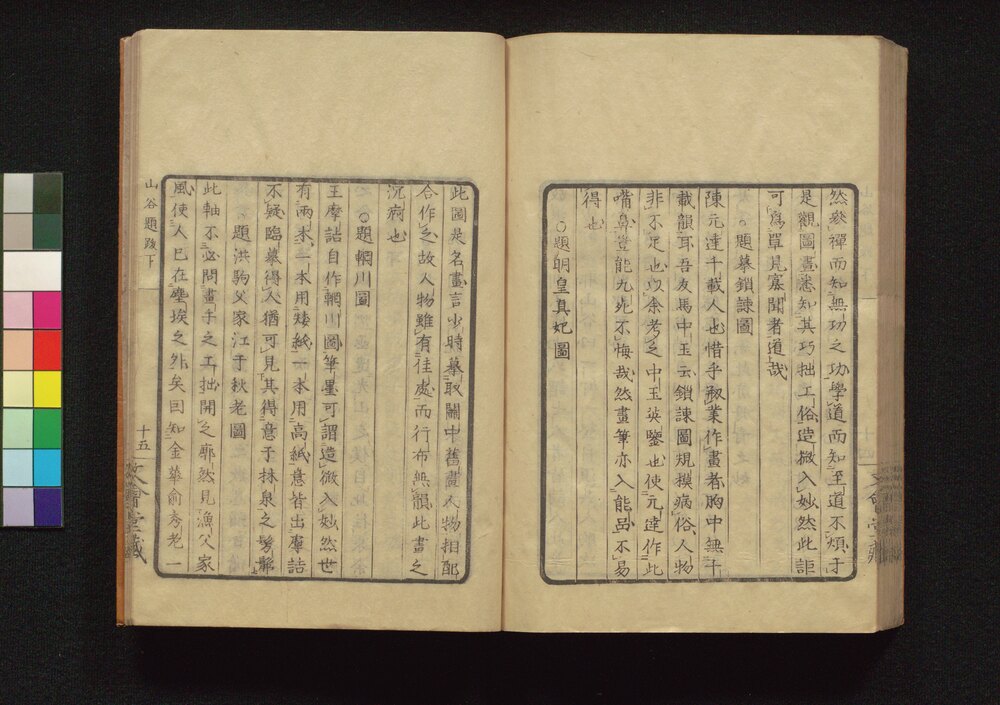 然參禪而知無功之功學道而知至道不煩于
是觀圖畫悉知其巧拙工俗造微入妙然此詎
可爲單見寡聞者道哉
○題摹鎖諫圖
陳元達千載人也惜乎剏業作畫者胸中無千
載韻耳吾友馬中玉云鎖諫圖規模病俗人物
非不足也以余考之中玉英鑒也使元達作此
嘴鼻豈能九死不悔哉然畫筆亦入能品不易
得也
○題明皇真妃圖
此圖是名畫言少時摹取關中舊畫人物相配
合作之故人物雖有佳處而行布無韻此畫之
沉痾也
○題輞川圖
王摩詰自作輞川圖筆墨可謂造微入妙然世
有兩本一本用矮紙一本用高紙意皆出摩詰
不疑臨摹得人猶可見其得意于林泉之髣髴
○題洪駒父家江干秋老圖
此軸不必問畫手之工拙開之廓然見漁父家
風使人已在塵埃之外矣固知金華俞秀老一
山谷題跋下
十五
文會堂藏